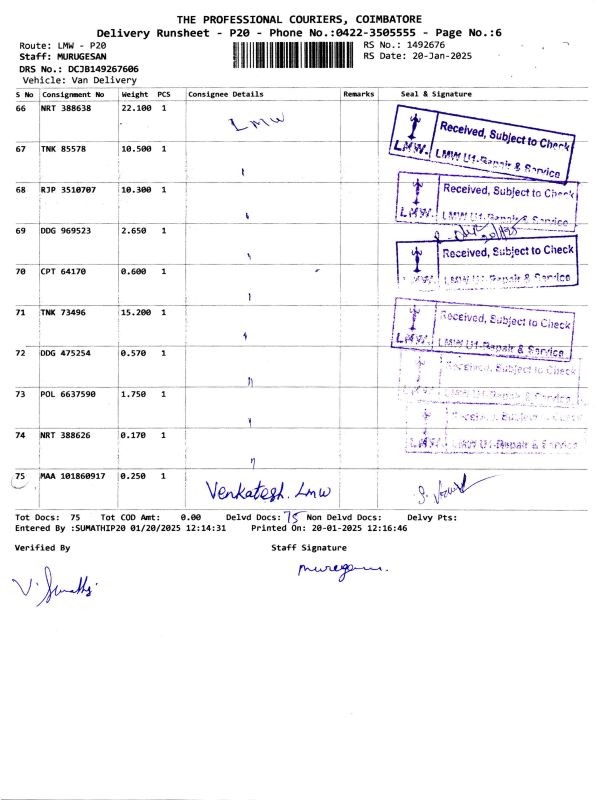 THE PROFESSIONAL COURIERS, COIMBATORE
Delivery Runsheet - P20 - Phone No.:0422-3505555 - Page No.:6
Route: LMW - P20 RS No.: 1492676
Staff: MURUGESAN RS Date: 20-Jan-2025
DRS No.: DCJB149267606
Vehicle: Van Delivery
S No Consignment No Weight PCS Consignee Details Remarks Seal & Signature
66 NRT 388638 22.100 1 LMW
Received, Subject to Check
LMW. LMW U1-Repair & Service
67 TNK 85578 10.500 1 "
68 RJP 3510707 10.300 1 "
Received, Subject to Check
LMW. LMW U1-Repair & Service
69 DDG 969523 2.650 1 "
Received, Subject to Check
LMW. LMW U1-Repair & Service
70 CPT 64170 0.600 1 "
71 TNK 73496 15.200 1 "
Received, Subject to Check
LMW. LMW U1-Repair & Service
72 DDG 475254 0.570 1 "
Received, Subject to Check
LMW. LMW U1-Repair & Service
73 POL 6637590 1.750 1 "
Received, Subject to Check
74 NRT 388626 0.170 1 "
LMW. LMW U1-Repair & Service
75 MAA 101860917 0.250 1 Venkatesh. Lmw
Tot Docs: 75 Tot COD Amt: 0.00 Delvd Docs: 75 Non Delvd Docs: Delvy Pts:
Entered By :SUMATHIP20 01/20/2025 12:14:31 Printed On: 20-01-2025 12:16:46
Verified By Staff Signature
V. Sumathi murugesan.